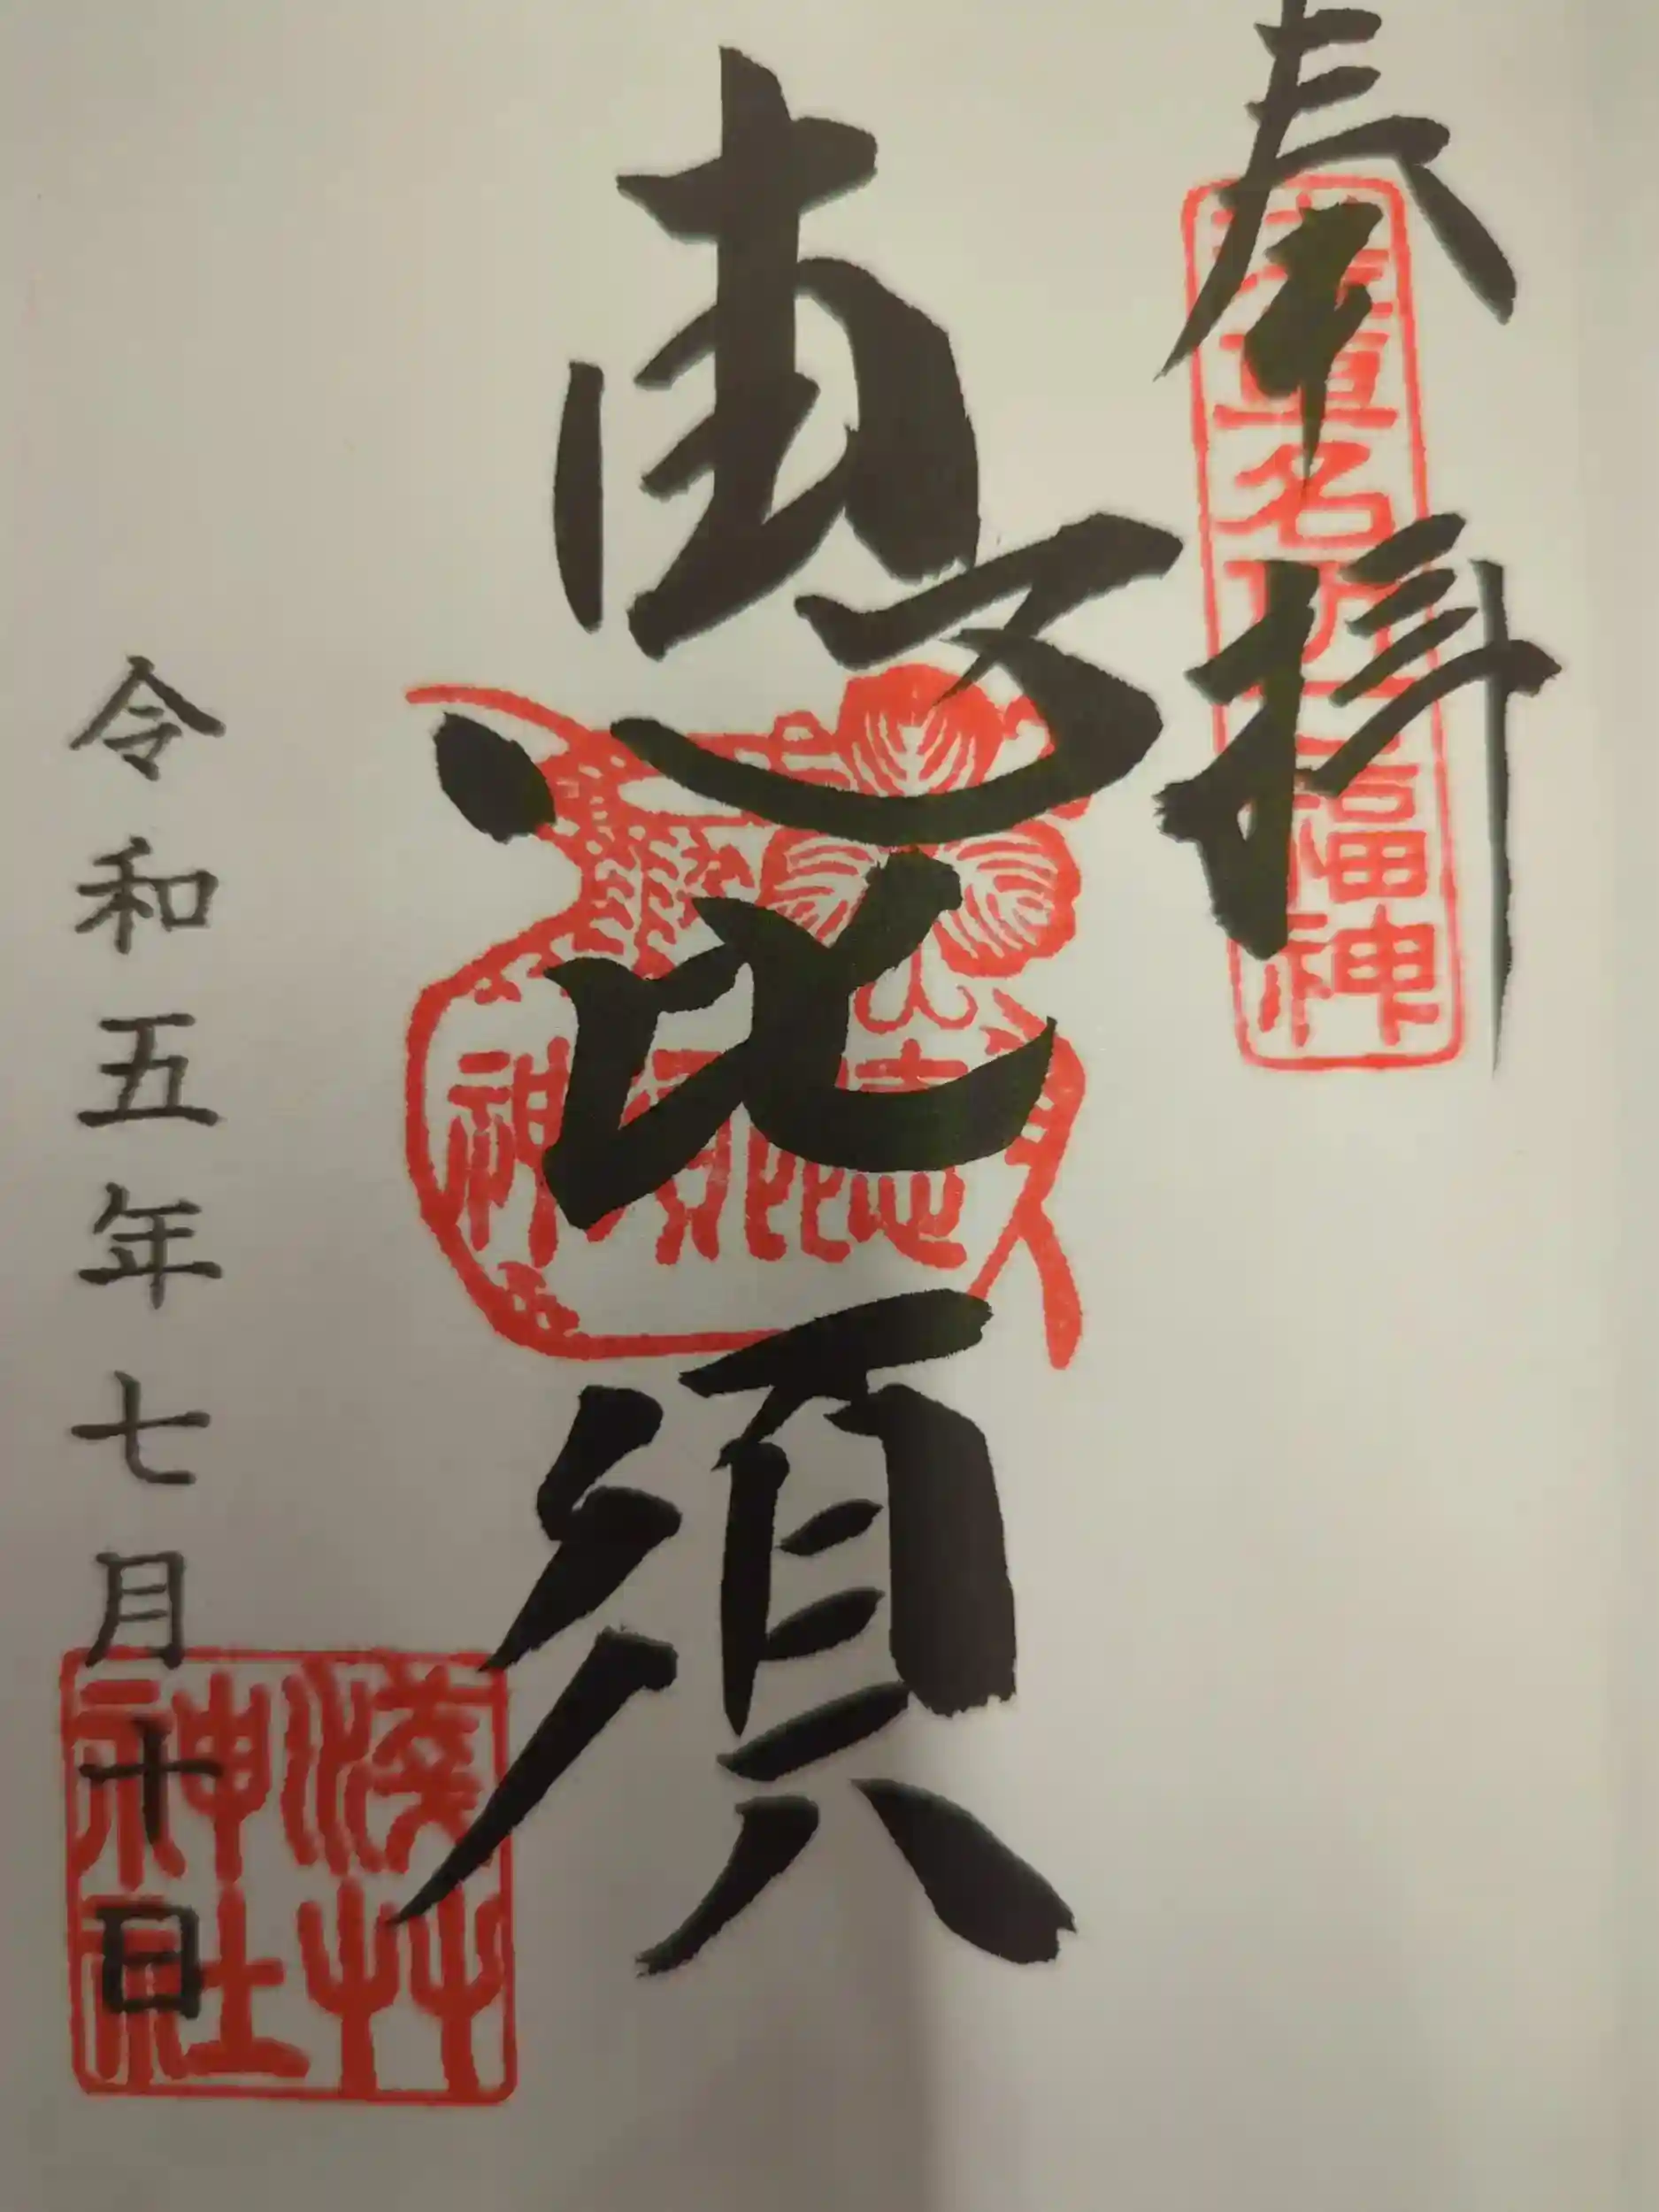 奉拝
浅草名所七福神
恵比須
恵比須神
令和五年七月十日
浅草神社